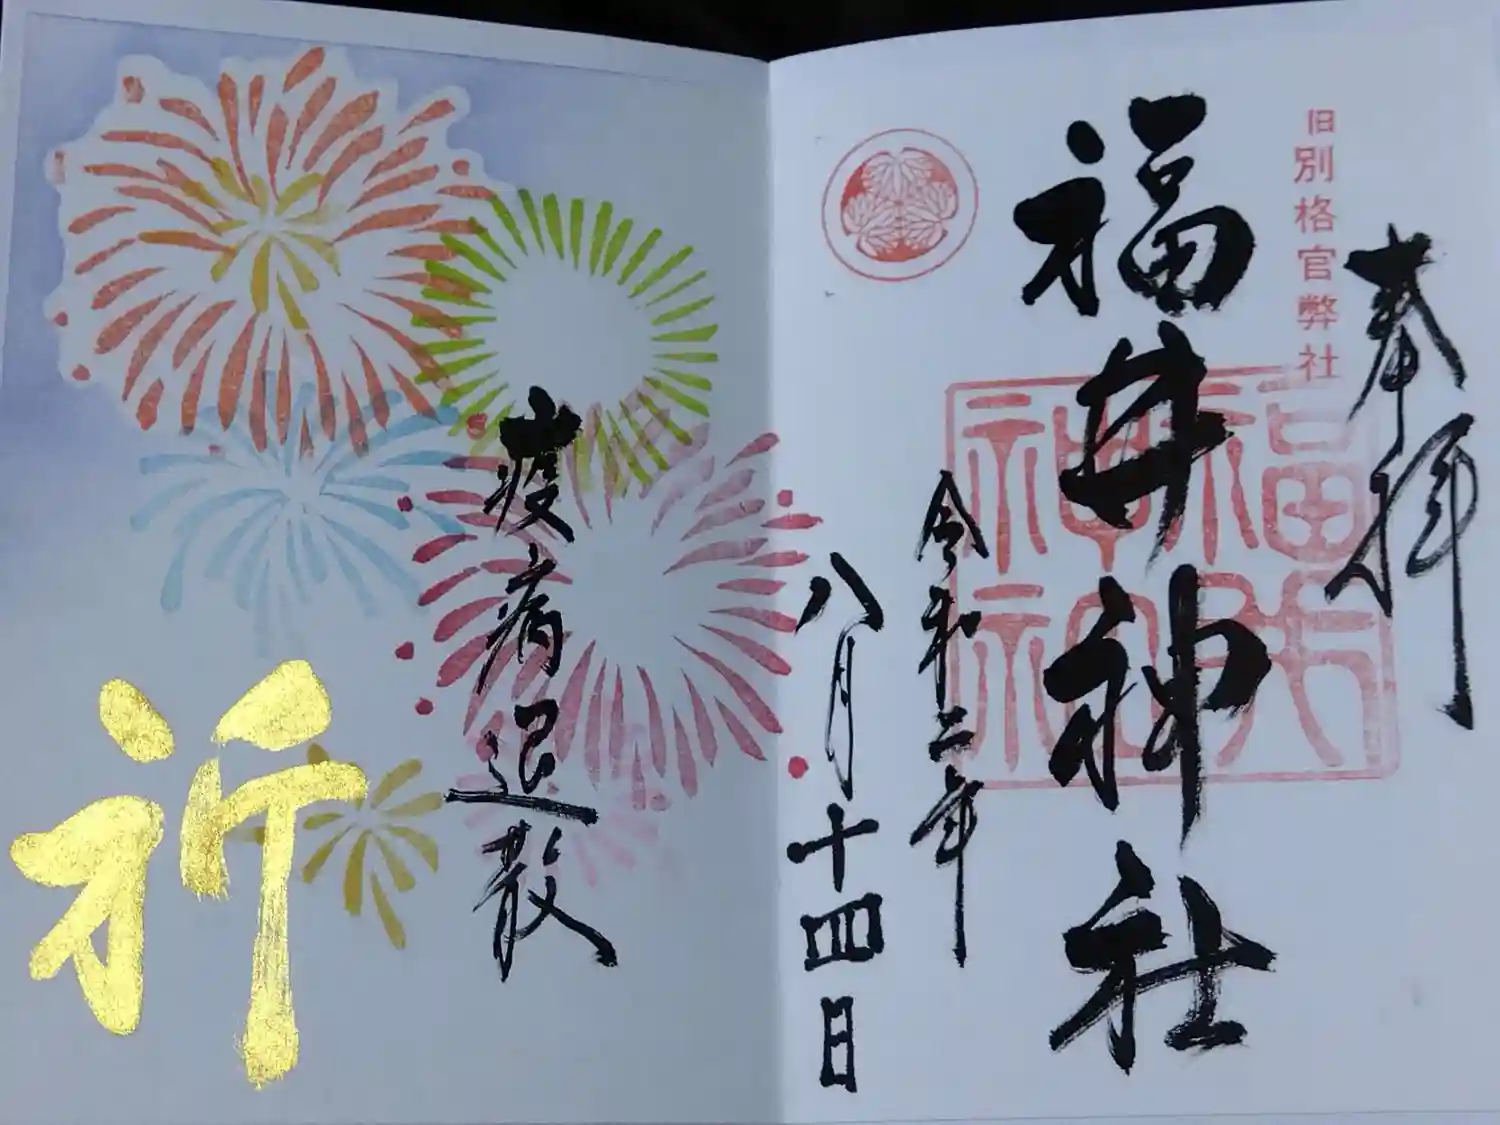 奉拝
旧別格官弊社
福井神社
福井神社
令和二年
八月十四日
疫病退散
祈